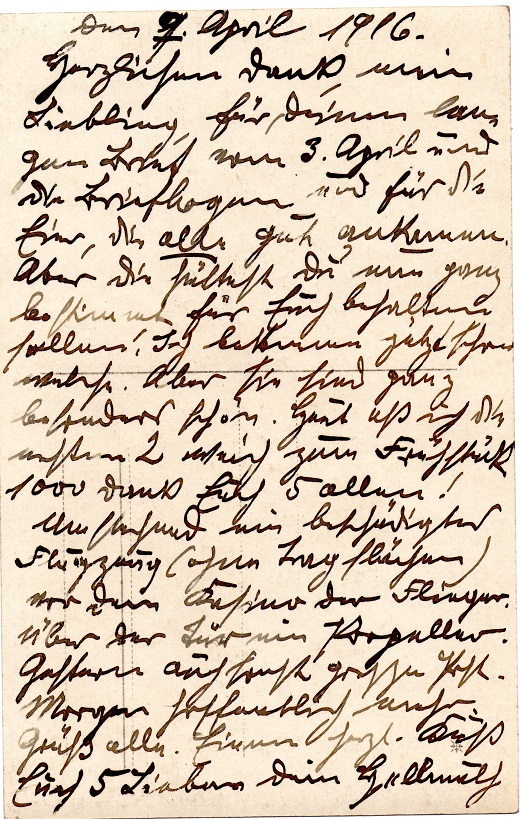 den 9. April 1916.
Herzlichen Dank, mein
Liebling, für deinen lan
gen Brief vom 3. April und
die Briefbogen und für die
Eier, die alle gut ankamen.
Aber die hättest du nun ganz
bestimmt für Euch behalten
sollen! Ich bekomme jetzt schon
welche. Aber sie sind ganz
besonders schön. Heut aß ich die
ersten 2 weich zum Frühstück
1000 Dank Euch 5 allen!
Umstehend ein beschädigtes
Flugzeug (ohne Tragflächen)
vor dem Kasino der Flieger.
über der Tür ein Propeller.
Gestern auch sonst große Post.
Morgen hoffentlich mehr.
Grüß alle. Einen herzl. Kuß
Euch 5 Lieben dein Hellmuth